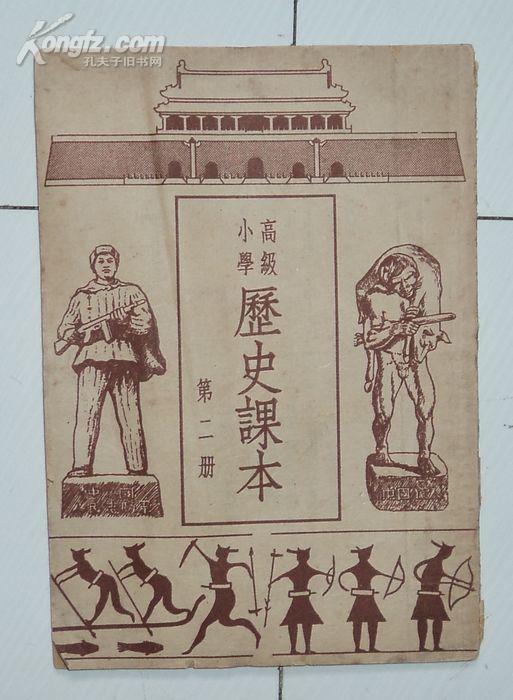 Kongfz.com
孔夫子旧书网
高級
小學
歷史課本
第二册
中國